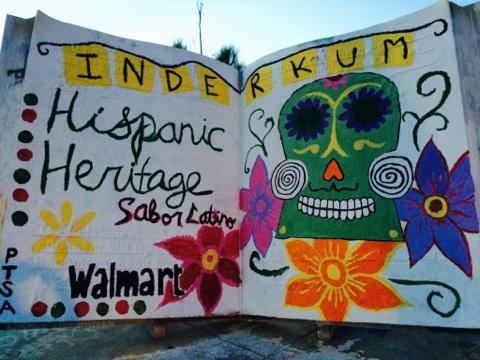 INDERKUM
Hispanic
Heritage
Sabor Latino
Walmart
PTSA